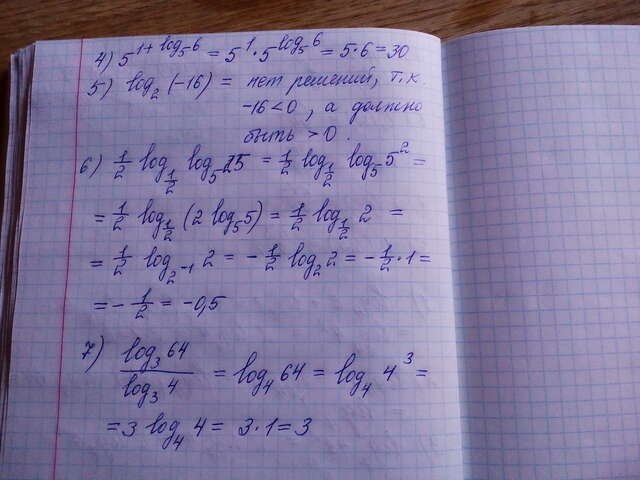 4) 5^{1+log_5 6} = 5^1 · 5^{log_5 6} = 5·6 = 30
5) log_2 (-16) = нет решений, т.к.
-16<0, а должно
быть >0.
6) 1/2 log_{1/2} log_5 25 = 1/2 log_{1/2} log_5 5^2 =
= 1/2 log_{1/2} (2 log_5 5) = 1/2 log_{1/2} 2 =
= 1/2 log_{2^{-1}} 2 = - 1/2 log_2 2 = - 1/2 · 1 =
= - 1/2 = -0,5
7) log_3 64 / log_3 4 = log_4 64 = log_4 4^3 =
= 3 log_4 4 = 3·1 = 3